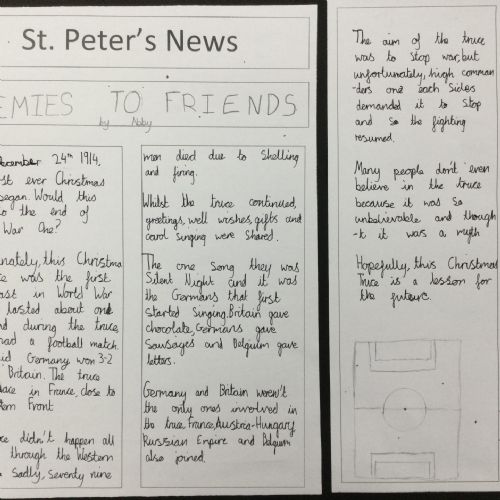 St. Peter's News
EMIES TO FRIENDS
by Abby
December 24th 1914,
st ever Christmas
began. Would this
o the end of
War One?
nately, this Christma
ce was the first
ast in World War
lasted about one
nd during the truce,
had a football match.
id Germany won 3-2
Britain. The truce
lace in France, close to
tern Front
ce didn't happen all
through the Western
Sadly, seventy nine
men died due to shelling
and firing.
Whilst the truce continued,
greetings, well wishes, gifts and
carol singing were shared.
The one song they was
Silent Night and it was
the Germans that first
started singing. Britain gave
chocolate, Germans gave
Sausages and Belgium gave
letters.
Germany and Britain weren't
the only ones involved in
the truce, France, Austria-Hungary
Russian Empire and Belgium
also joined.
The aim of the truce
was to stop war, but
unfortunately, high comman
-ders one each sides
demanded it to stop
and so the fighting
resumed.
Many people don't even
believe in the truce
because it was so
unbelievable and though
-t it was a myth
Hopefully, this Christmas
Truce is a lesson for
the future.